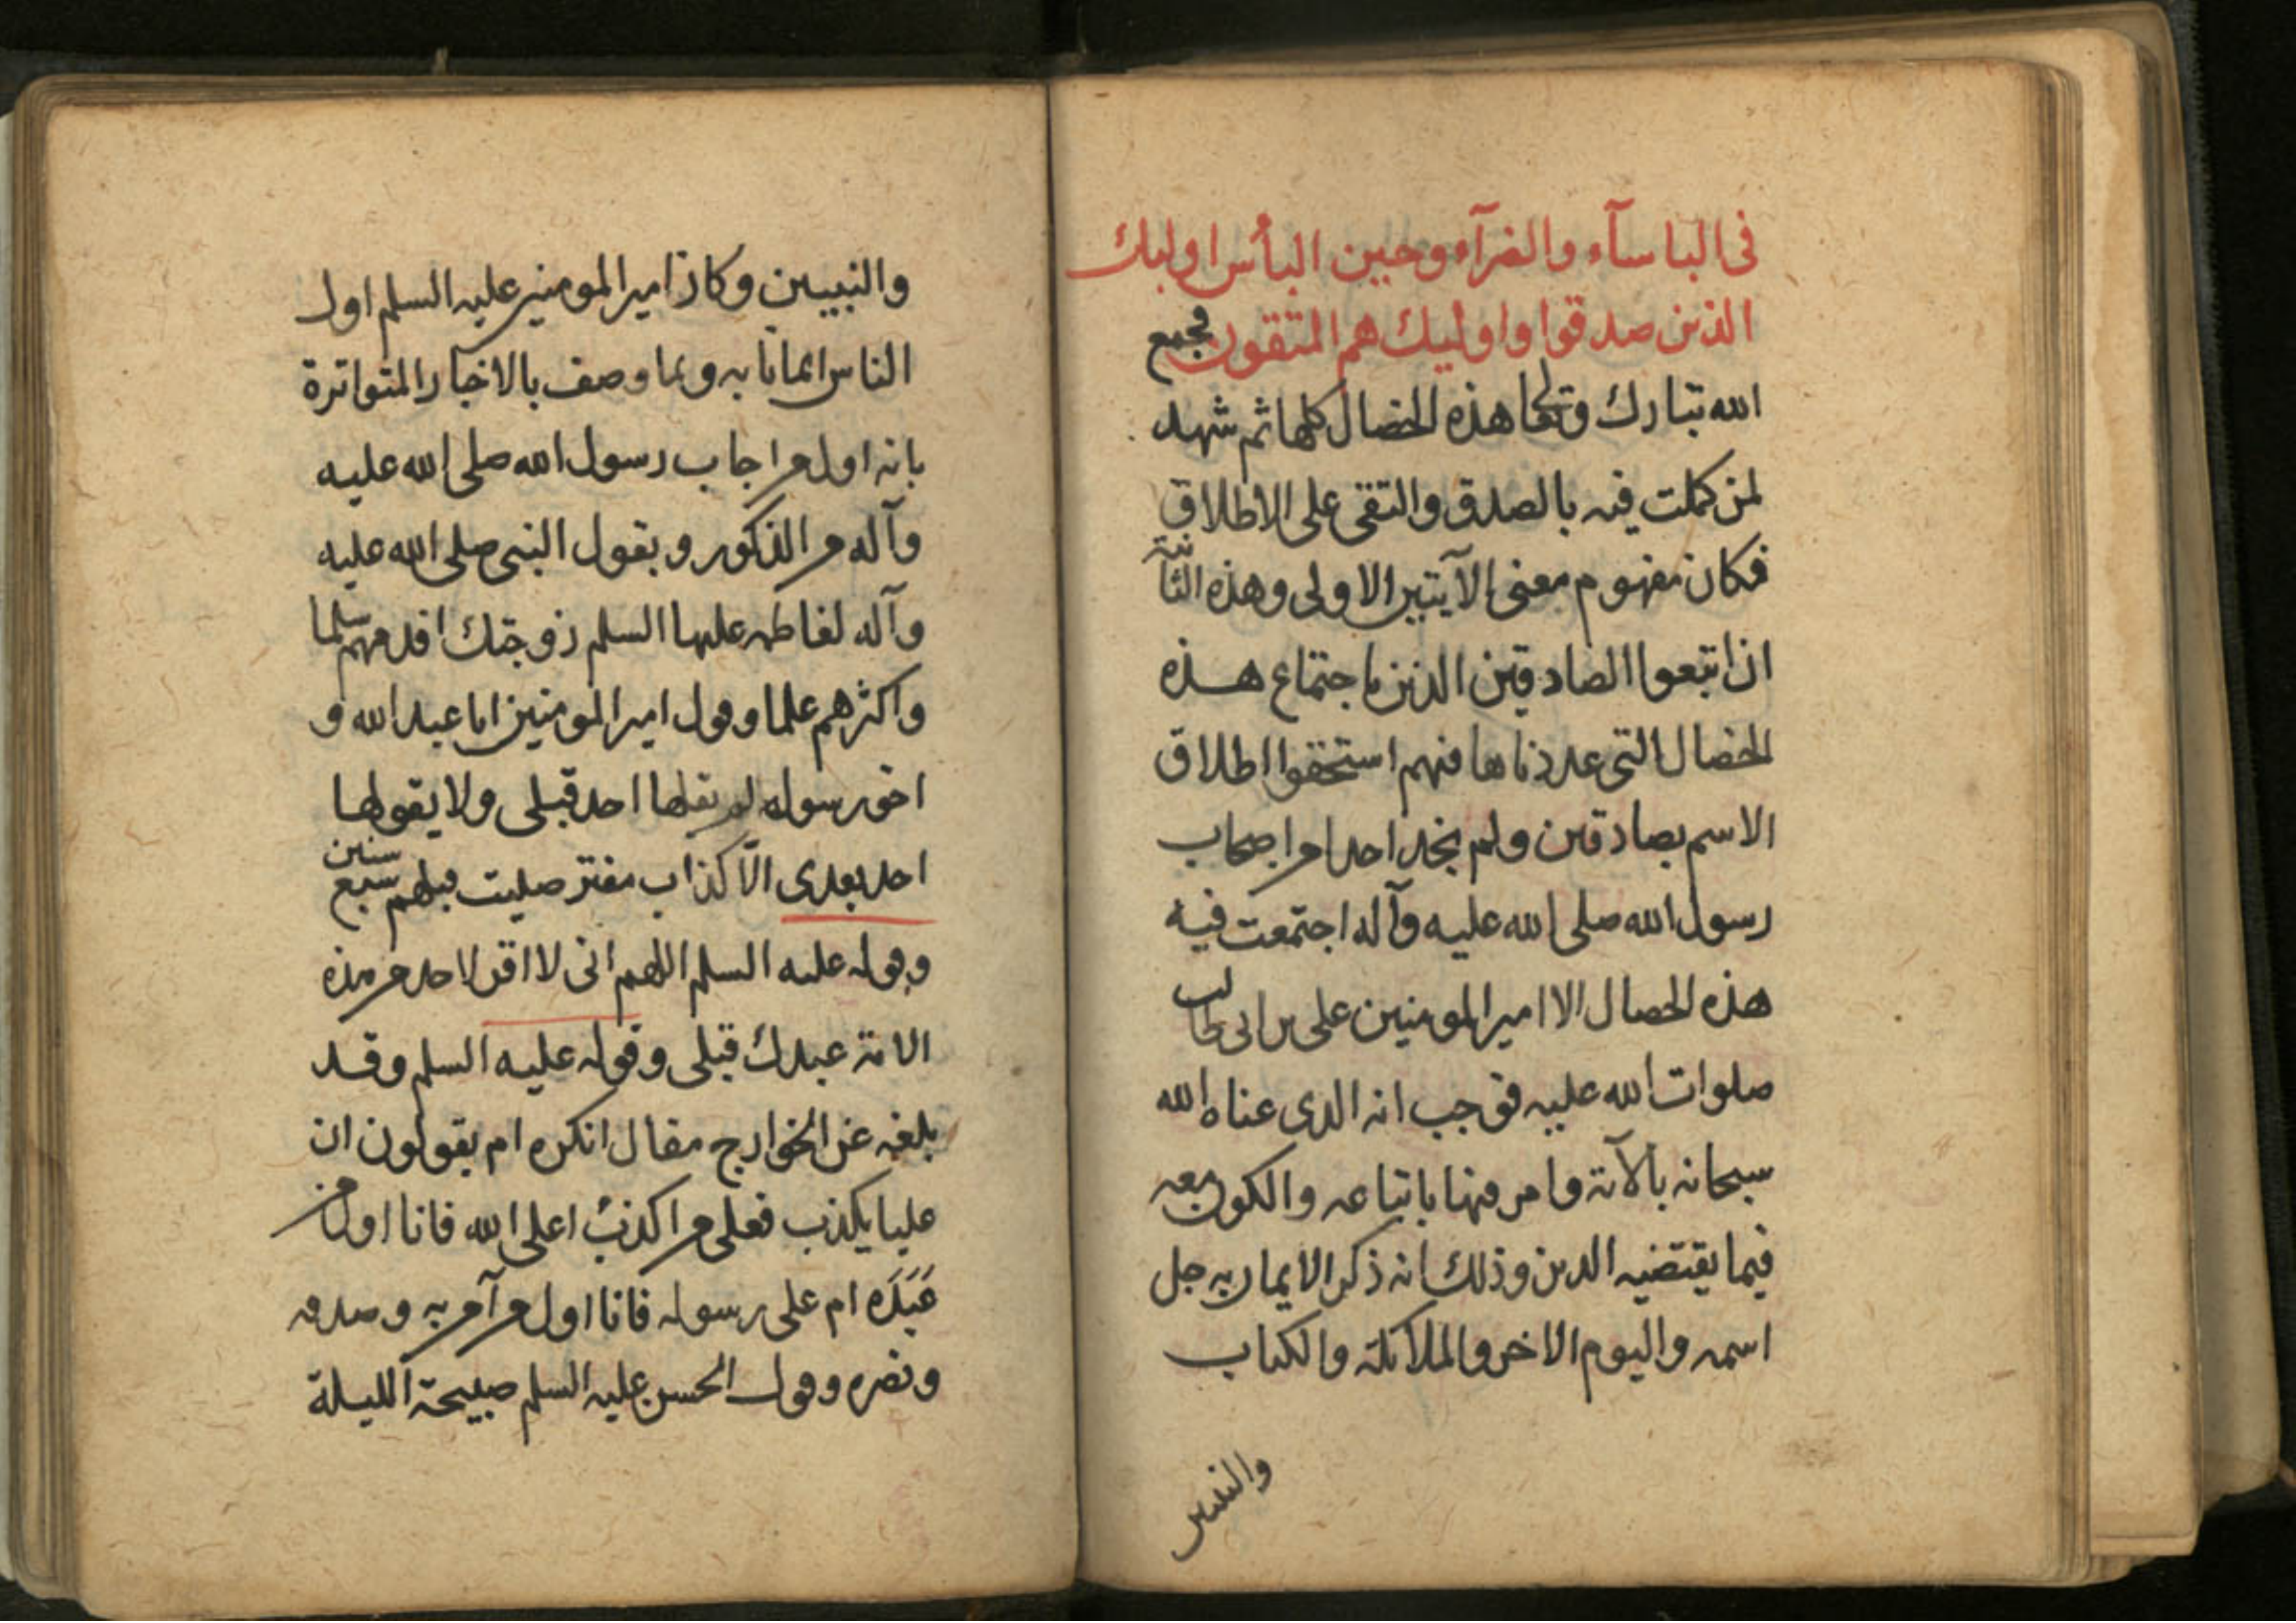 فى الباسآء والضرآء وحين البأس اوليك
الذين صدقوا واوليك هم المتقون فجمع
الله تبارك وتعالى هذه الخصال كلها ثم شهد
لمن كملت فيه بالصدق والتقى على الاطلاق
فكان مفهوم معنى الآيتين الاولى وهذه الثانية
ان اتبعوا الصادقين الذين باجتماع هذه
الخصال التى عددناها فيهم استحقوا اطلاق
الاسم بصادقين ولم نجد احدا من اصحاب
رسول الله صلى الله عليه وآله اجتمعت فيه
هذه الخصال الا امير المومنين على بن ابى طالب
صلوات الله عليه فوجب انه الذى عناه الله
سبحانه بالآية وامر فيها باتباعه والكون معه
فيما يقتضيه الدين وذلك انه ذكر الايمان به جل
اسمه واليوم الاخر والملائكة والكتاب
والنبيين
والنبيين وكان امير المومنين عليه السلم اول
الناس ايمانا به وبما وصف بالاخبار المتواترة
بانه اول من اجاب رسول الله صلى الله عليه
وآله من الذكور وبقول النبى صلى الله عليه
وآله لفاطمه عليها السلم زوجتك اقدمهم سلما
واكثرهم علما وقول امير المومنين انا عبد الله و
اخو رسوله لم يقلها احد قبلى ولا يقولها
احد بعدى الّا كذاب مفتر صليت قبلهم سبع سنين
وقوله عليه السلم اللهم انى لا اقر لاحد من هذه
الامة عبدك قبلى وقوله عليه السلم وقد
بلغه عن الخوارج مقال انكره ام يقولون ان
عليا يكذب فعلى من اكذب اعلى الله فانا اول من
عَبَدَه ام على رسوله فانا اول من آمن به وصدقه
ونصره وقول الحسن عليه السلم صبيحة الليلة